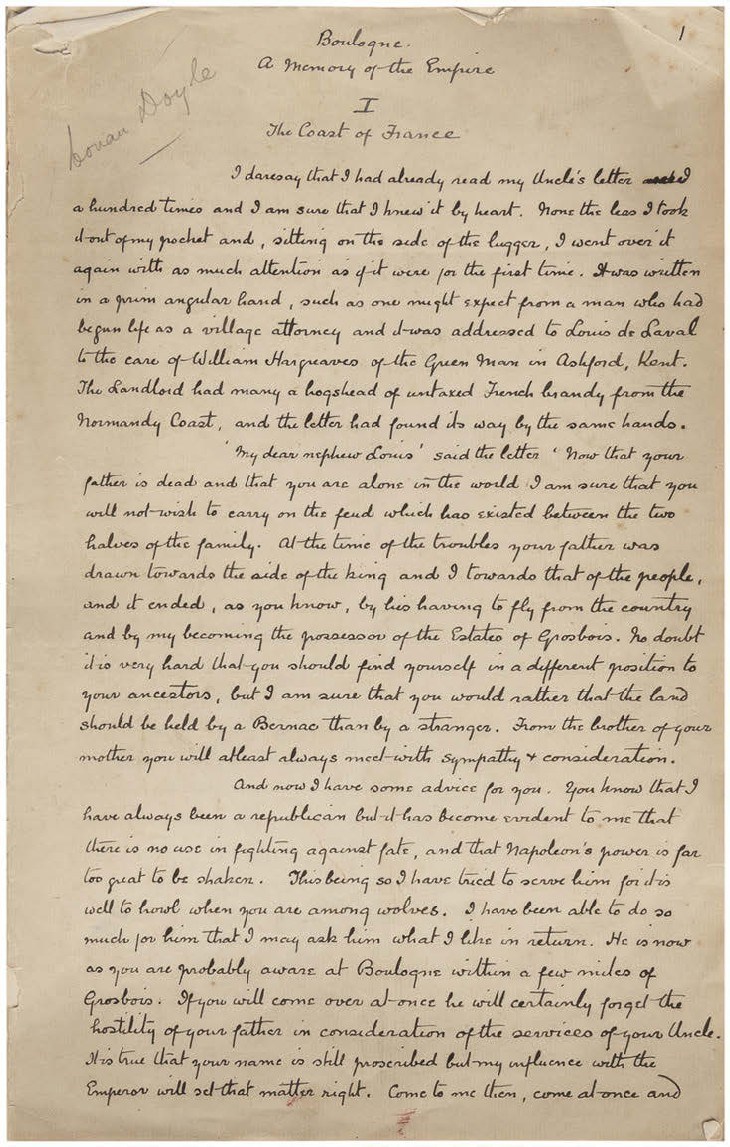 1
Boulogne.
A Memory of the Empire
Conan Doyle
I
The Coast of France
I daresay that I had already read my Uncle's letter
a hundred times and I am sure that I knew it by heart. None the less I took
it out of my pocket and, sitting on the side of the lugger, I went over it
again with as much attention as if it were for the first time. It was written
in a prim angular hand, such as one might expect from a man who had
begun life as a village attorney and it was addressed to Louis de Laval
to the care of William Hargreaves of the Green Man in Ashford, Kent.
The Landlord had many a hogshead of untaxed French brandy from the
Normandy Coast, and the letter had found its way by the same hands.
'My dear nephew Louis' said the letter 'Now that your
father is dead and that you are alone in the world I am sure that you
will not wish to carry on the feud which has existed between the two
halves of the family. At the time of the troubles your father was
drawn towards the side of the king and I towards that of the people,
and it ended, as you know, by his having to fly from the country
and by my becoming the possessor of the Estates of Grosbois. No doubt
it is very hard that you should find yourself in a different position to
your ancestors, but I am sure that you would rather that the land
should be held by a Bernac than by a stranger. From the brother of your
mother you will atleast always meet with sympathy & consideration.
And now I have some advice for you. You know that I
have always been a republican but it has become evident to me that
there is no use in fighting against fate, and that Napoleon's power is far
too great to be shaken. This being so I have tried to serve him for it is
well to howl when you are among wolves. I have been able to do so
much for him that I may ask him what I like in return. He is now
as you are probably aware at Boulogne within a few miles of
Grosbois. If you will come over at once he will certainly forget the
hostility of your father in consideration of the services of your Uncle.
It is true that your name is still proscribed but my influence with the
Emperor will set that matter right. Come to me then, come at once and